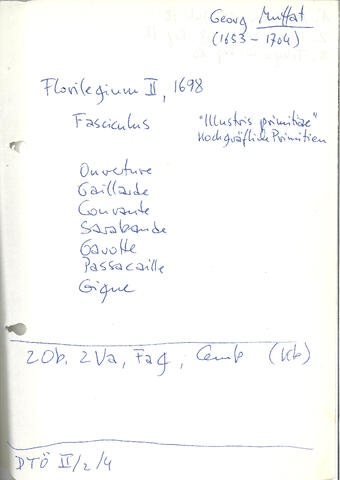 Georg Muffat
(1653 - 1704)
Florilegium II, 1698
Fasciculus "Illustris primitiae"
Hochgräfliche Primitien
Ouverture
Gaillarde
Courante
Sarabande
Gavotte
Passacaille
Gigue
2 Ob. 2 Va, Fag, Cemb (Kb)
DTÖ II/2/4